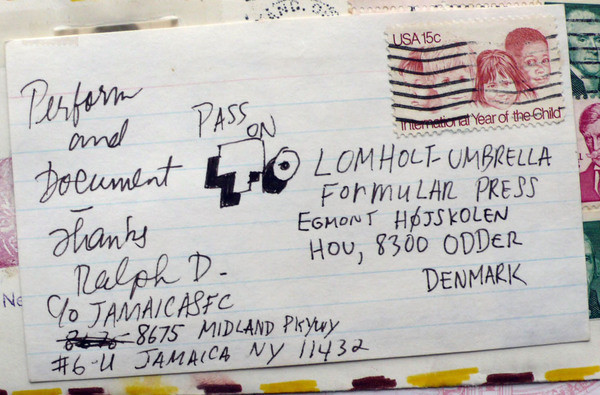 MAND. OR
USA 15c
International Year of the Child
Perform
and
Document
Thanks
Ralph D.
C/o JAMAICASFC
8675 MIDLAND PKYWY
#6-U JAMAICA NY 11432
PASS
ON
LOMHOLT-UMBRELLA
FORMULAR PRESS
EGMONT HØJSKOLEN
HOV, 8300 ODDER
DENMARK
Ne